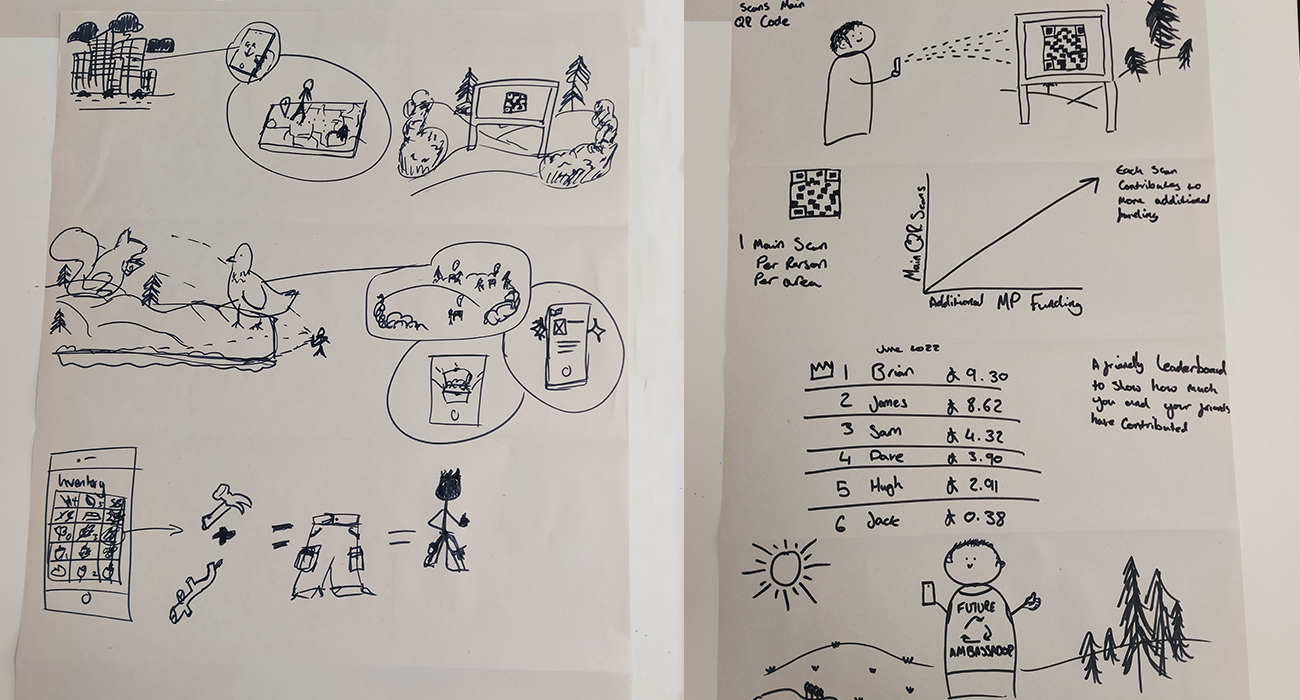 Inventory
Scans Main
QR Code
1 Main Scan
Per Person
Per area
Main QR Scans
Additional MP Funding
Each Scan
Contributes to
more additional
funding
June 2022
1 Brian £ 9.30
2 James £ 8.62
3 Sam £ 4.32
4 Dave £ 3.90
5 Hugh £ 2.91
6 Jack £ 0.38
A friendly Leaderboard
to show how much
you and your friends
have contributed
FUTURE
AMBASSADOR